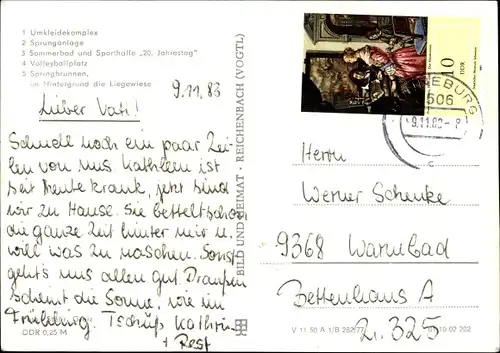 1 Umkleidekomplex
2 Sprunganlage
3 Sommerbad und Sporthalle „20. Jahrestag“
4 Volleyballplatz
5 Springbrunnen,
im Hintergrund die Liegewiese
9.11.83
Lieber Vati!
Schnell noch ein paar Zei-
len von uns Kathleen ist
seit heute krank, jetzt sind
wir zu Hause. Sie bettelt schon
die ganze Zeit hinter mir u.
will was zu naschen. Sonst
geht's uns allen gut. Draußen
scheint die Sonne, wie im
Frühling. Tschüß Kathrin
+ Rest
DDR 0,25 M
BILD UND HEIMAT · REICHENBACH (VOGTL)
10
DDR
506
9.11.83
Herrn
Werner Schenke
9368 Warmbad
Bettenhaus A
Zi. 325
V 11 50 A 1/B 282/77
10 02 202